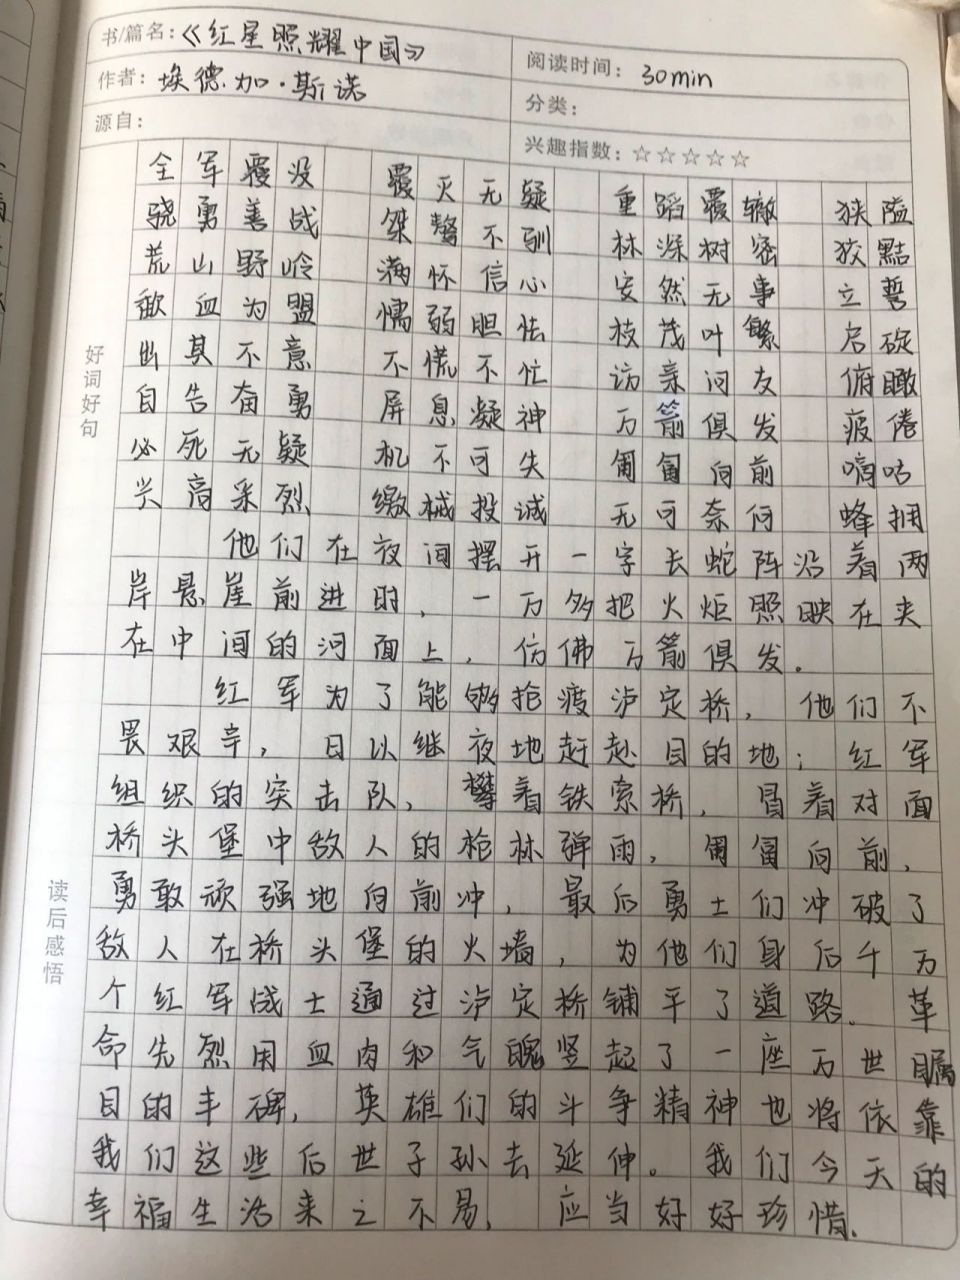 书/篇名：《红星照耀中国》
阅读时间：30min
作者：埃德加·斯诺
分类：
源自：
兴趣指数：☆☆☆☆☆
好词好句
全军覆没 覆灭无疑 重蹈覆辙 狭隘
骁勇善战 桀骜不驯 林深树密 狡黠
荒山野岭 满怀信心 安然无事 立誓
歃血为盟 懦弱胆怯 枝茂叶繁 启碇
出其不意 不慌不忙 访亲问友 俯瞰
自告奋勇 屏息凝神 万箭俱发 疲倦
必死无疑 机不可失 匍匐向前 嘀咕
兴高采烈 缴械投诚 无可奈何 蜂拥
他们在夜间摆开一字长蛇阵沿着两
岸悬崖前进时，一万多把火炬照映在夹
在中间的河面上，仿佛万箭俱发。
读后感悟
红军为了能够抢渡泸定桥，他们不
畏艰辛，日以继夜地赶赴目的地；红军
组织的突击队，攀着铁索桥，冒着对面
桥头堡中敌人的枪林弹雨，匍匐向前，
勇敢顽强地向前冲，最后勇士们冲破了
敌人在桥头堡的火墙，为他们身后千万
个红军战士通过泸定桥铺平了道路。革
命先烈用血肉和气魄竖起了一座万世瞩
目的丰碑，英雄们的斗争精神也将依靠
我们这些后世子孙去延伸。我们今天的
幸福生活来之不易，应当好好珍惜。